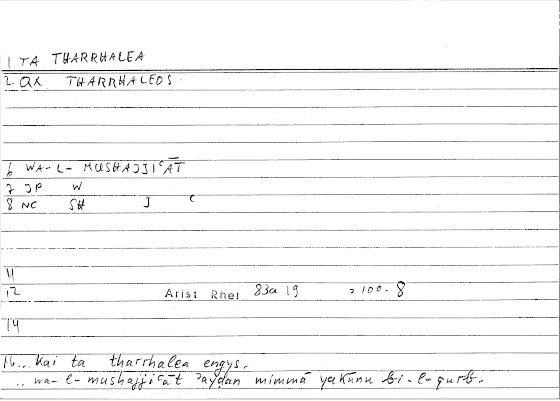 1 TA THARRHALEA
2 QX THARRHALEOS
6 WA-L-MUSHAJJIʿĀT
7 JP W
8 NC SH J ʿ
11
12 Arist Rhet 83a 19 = 100.8
14
16 ...Kai ta tharrhalea engys.
.. wa-l-mushajjiʿāt ʾayḍan mimmā yakūnu bi-l-qurb.